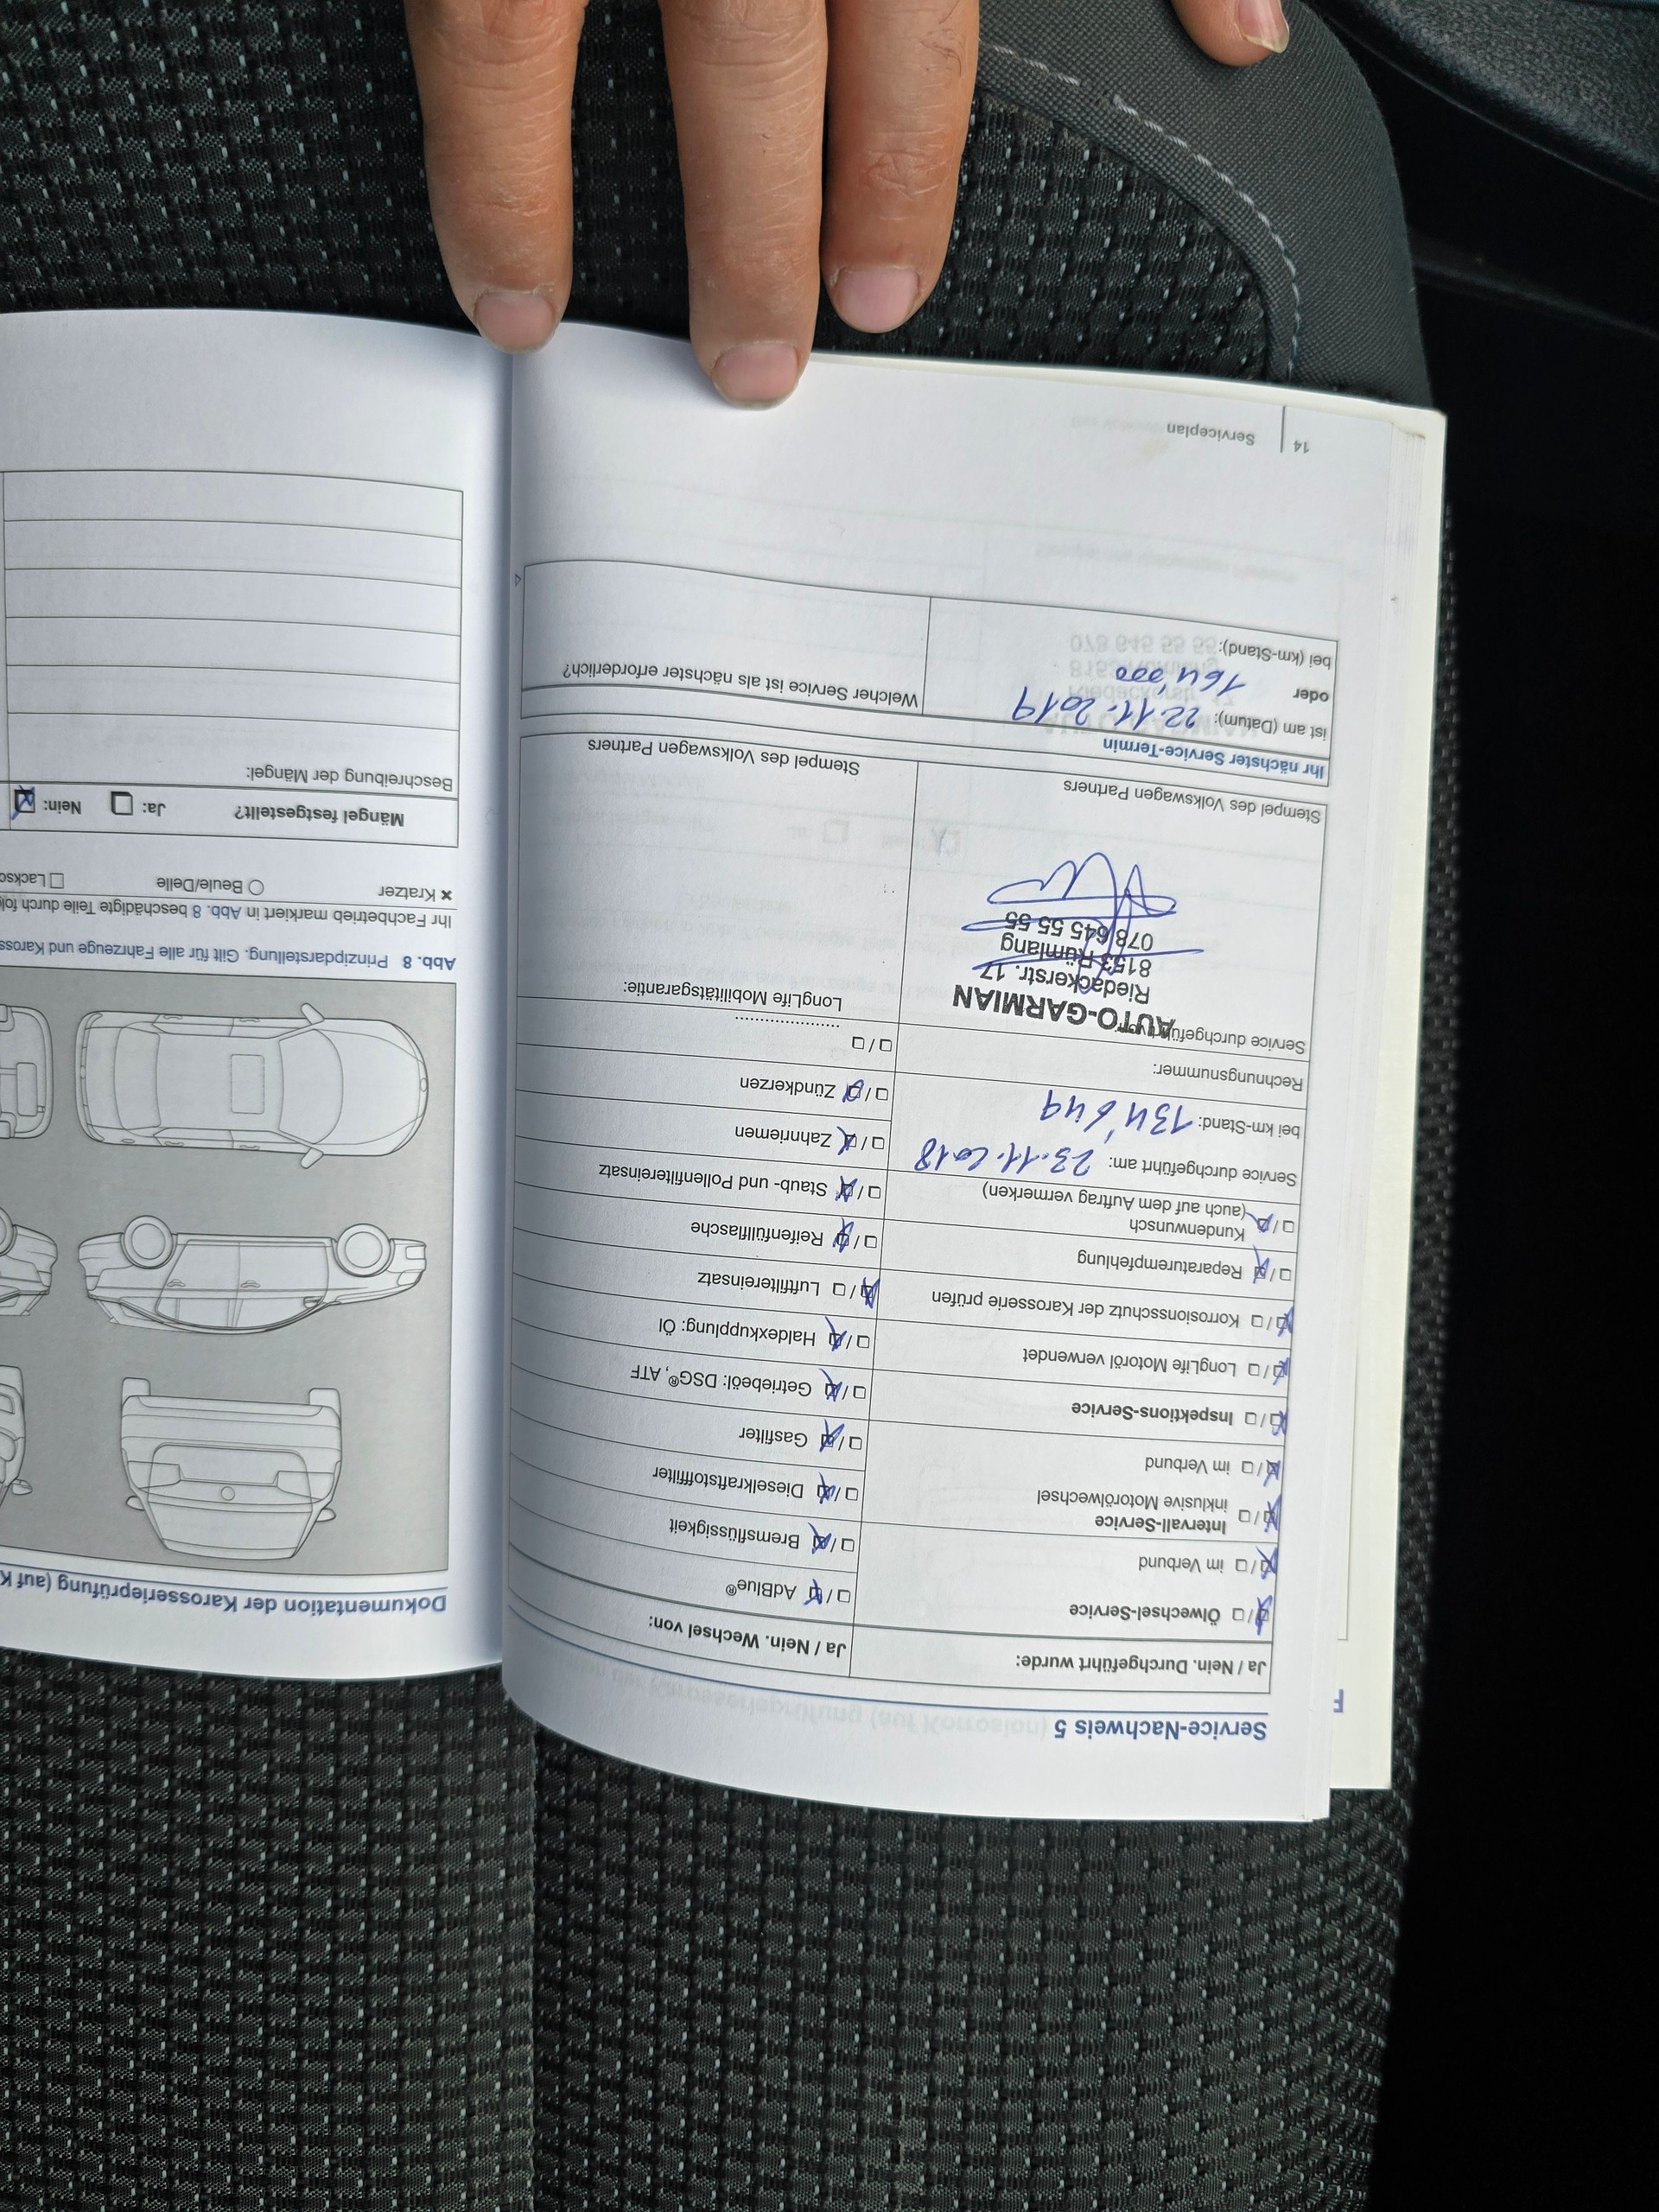 Service-Nachweis 5
Ja / Nein. Durchgeführt wurde:
Ölwechsel-Service
im Verbund
Intervall-Service
inklusive Motorölwechsel
im Verbund
Inspektions-Service
LongLife Motoröl verwendet
Korrosionsschutz der Karosserie prüfen
Reparaturempfehlung
Kundenwunsch
(auch auf dem Auftrag vermerken)
Service durchgeführt am: 23.11.2018
bei km-Stand: 134'649
Rechnungsnummer:
Service durchgeführt von:
AUTO-GARMIAN
Riedackerstr. 17
8153 Rümlang
078 645 55 55
Stempel des Volkswagen Partners
Ja / Nein. Wechsel von:
AdBlue®
Bremsflüssigkeit
Dieselkraftstofffilter
Gasfilter
Getriebeöl: DSG®, ATF
Haldexkupplung: Öl
Luftfiltereinsatz
Reifenfüllflasche
Staub- und Pollenfiltereinsatz
Zahnriemen
Zündkerzen
LongLife Mobilitätsgarantie:
Stempel des Volkswagen Partners
Ihr nächster Service-Termin
ist am (Datum): 22.11.2019
oder
164'000
bei (km-Stand):
Welcher Service ist als nächster erforderlich?
14 Serviceplan
Dokumentation der Karosserieprüfung (auf K
Abb. 8 Prinzipdarstellung. Gilt für alle Fahrzeuge und Kaross
Ihr Fachbetrieb markiert in Abb. 8 beschädigte Teile durch folg
Kratzer
Beule/Delle
Lacksc
Mängel festgestellt? Ja: Nein:
Beschreibung der Mängel:
F